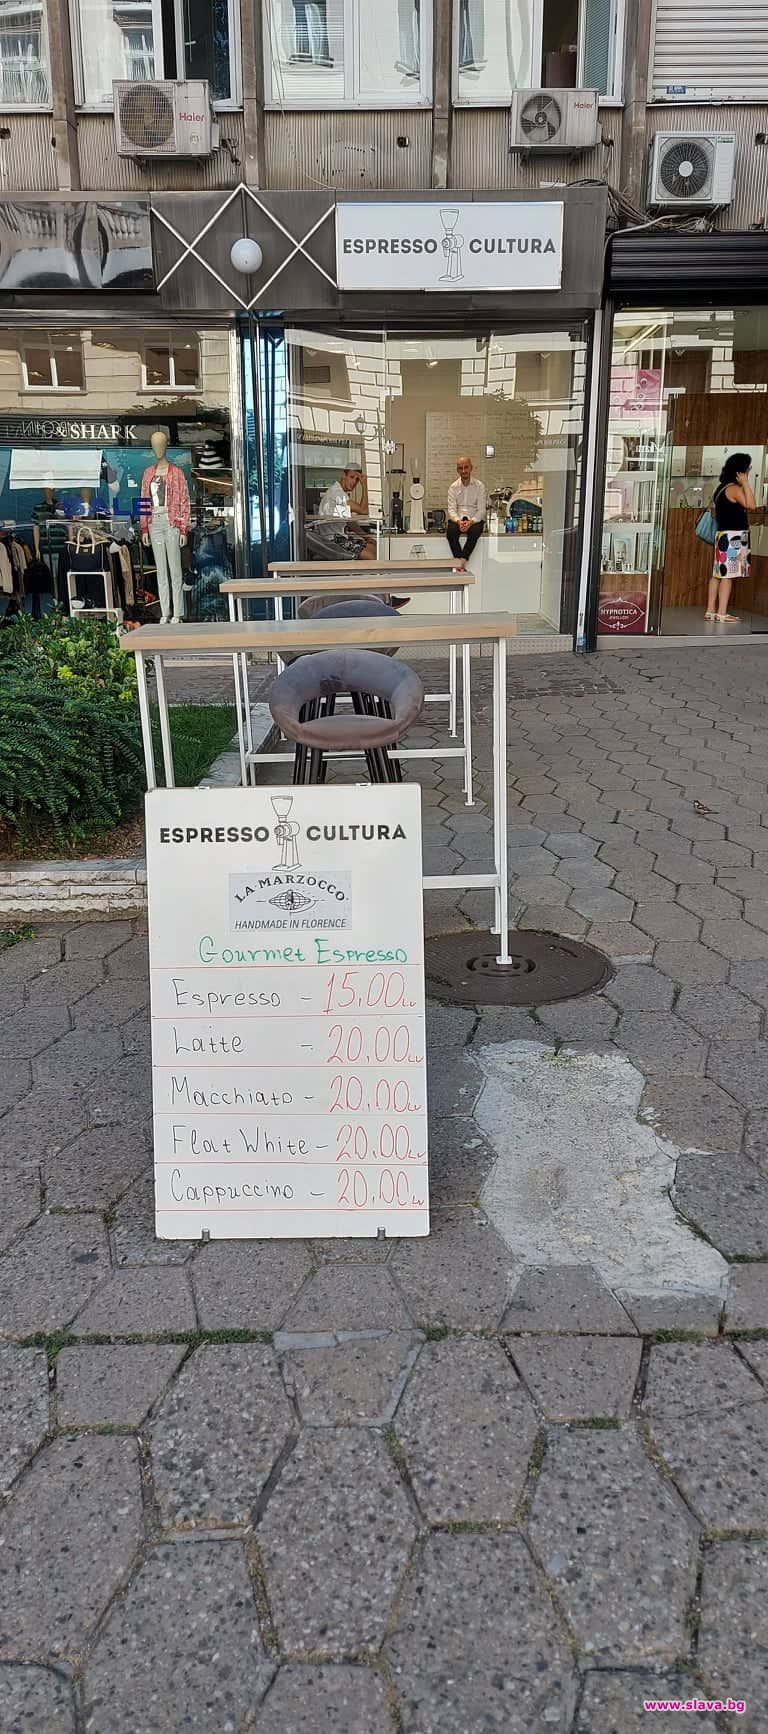 Haier
Haier
ESPRESSO CULTURA
& SHARK
SALE
HYPNOTICA
JEWELLERY
ESPRESSO CULTURA
LA MARZOCCO
HANDMADE IN FLORENCE
Gourmet Espresso
Espresso - 15,00 Lv
Latte - 20,00 Lv
Macchiato - 20,00 Lv
Flat White - 20,00 Lv
Cappuccino - 20,00 Lv
www.slava.bg